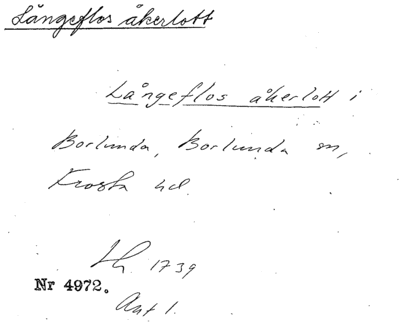 Långeflos åkerlott
Långeflos åkerlott i
Borlunda, Borlunda sn,
Frosta hd.
Lh. 1739
Nr 4972.
Akt 1.